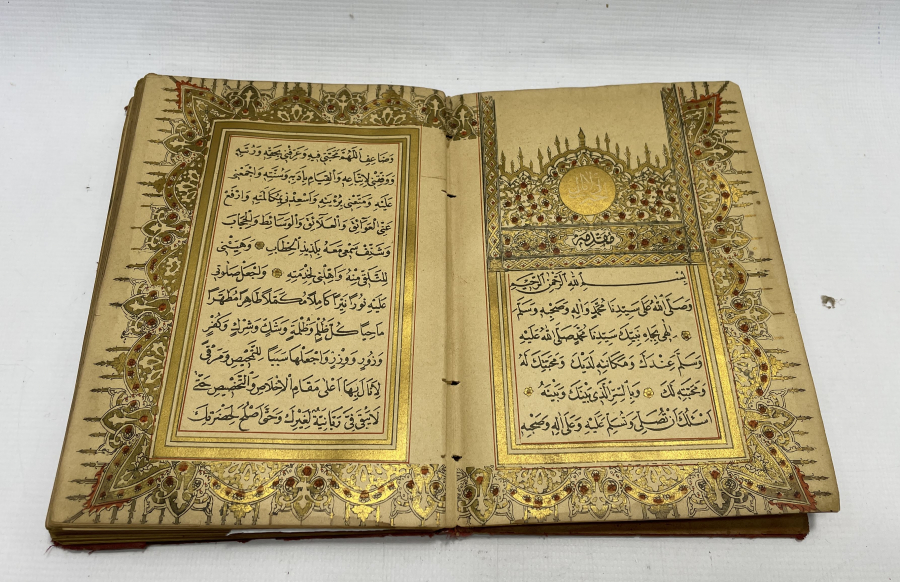 مقدمه
بسم الله الرحمن الرحيم
وَصَلَّى اللهُ عَلَى سَيِّدِنَا مُحَمَّدٍ وَاٰلِهِ وَصَحْبِهِ وَسَلَّمَ
اِلٰهِى بِجَاهِ نَبِيِّكَ سَيِّدِنَا مُحَمَّدٍ صَلَّى اللهُ عَلَيْهِ
وَسَلَّمَ عِنْدَكَ وَمَكَانَتِهِ لَدَيْكَ وَمَحَبَّتِكَ لَهُ
وَمَحَبَّتِهِ لَكَ وَبِالسِّرِّ الَّذِى بَيْنَكَ وَبَيْنَهُ
اَسْئَلُكَ اَنْ تُصَلِّىَ وَتُسَلِّمَ عَلَيْهِ وَعَلَى اٰلِهِ وَصَحْبِهِ
وَضَاعِفِ اللّٰهُمَّ مَحَبَّتِى فِيهِ وَعَرِّفْنِى بِحَقِّهِ وَرُتَبِهِ
وَوَفِّقْنِى لِاتِّبَاعِهِ وَالْقِيَامِ بِاٰدَابِهِ وَسُنَّتِهِ وَاجْمَعْنِى
عَلَيْهِ وَمَتِّعْنِى بِرُؤْيَتِهِ وَاَسْعِدْنِى بِمُكَالَمَتِهِ وَارْفَعْ
عَنِّى الْعَوَائِقَ وَالْعَلَائِقَ وَالْوَسَائِطَ وَالْحِجَابَ
وَشَنِّفْ سَمْعِى مَعَهُ بِلَذِيذِ الْخِطَابِ وَهَيِّئْنِى
لِلتَّلَقِّى مِنْهُ وَاَهِّلْنِى لِخِدْمَتِهِ وَاجْعَلْ صَلٰوتِى
عَلَيْهِ نُورًا نَيِّرًا كَامِلًا مُكَمَّلًا طَاهِرًا مُطَهَّرًا
مَاحِيًا كُلَّ ظُلْمٍ وَظُلْمَةٍ وَشَكٍّ وَشِرْكٍ وَكُفْرٍ
وَزُورٍ وَوِزْرٍ وَاجْعَلْهَا سَبَبًا لِلتَّمْحِيصِ وَمَرْقًى
لِاَنَالَ بِهَا اَعْلَى مَقَامِ الْاِخْلَاصِ وَالتَّخْصِيصِ حَتّٰى
لَا يَبْقَى فِىَّ رَبَّانِيَّةٌ لِغَيْرِكَ وَحَتّٰى اَصْلُحَ لِحَضْرَتِكَ